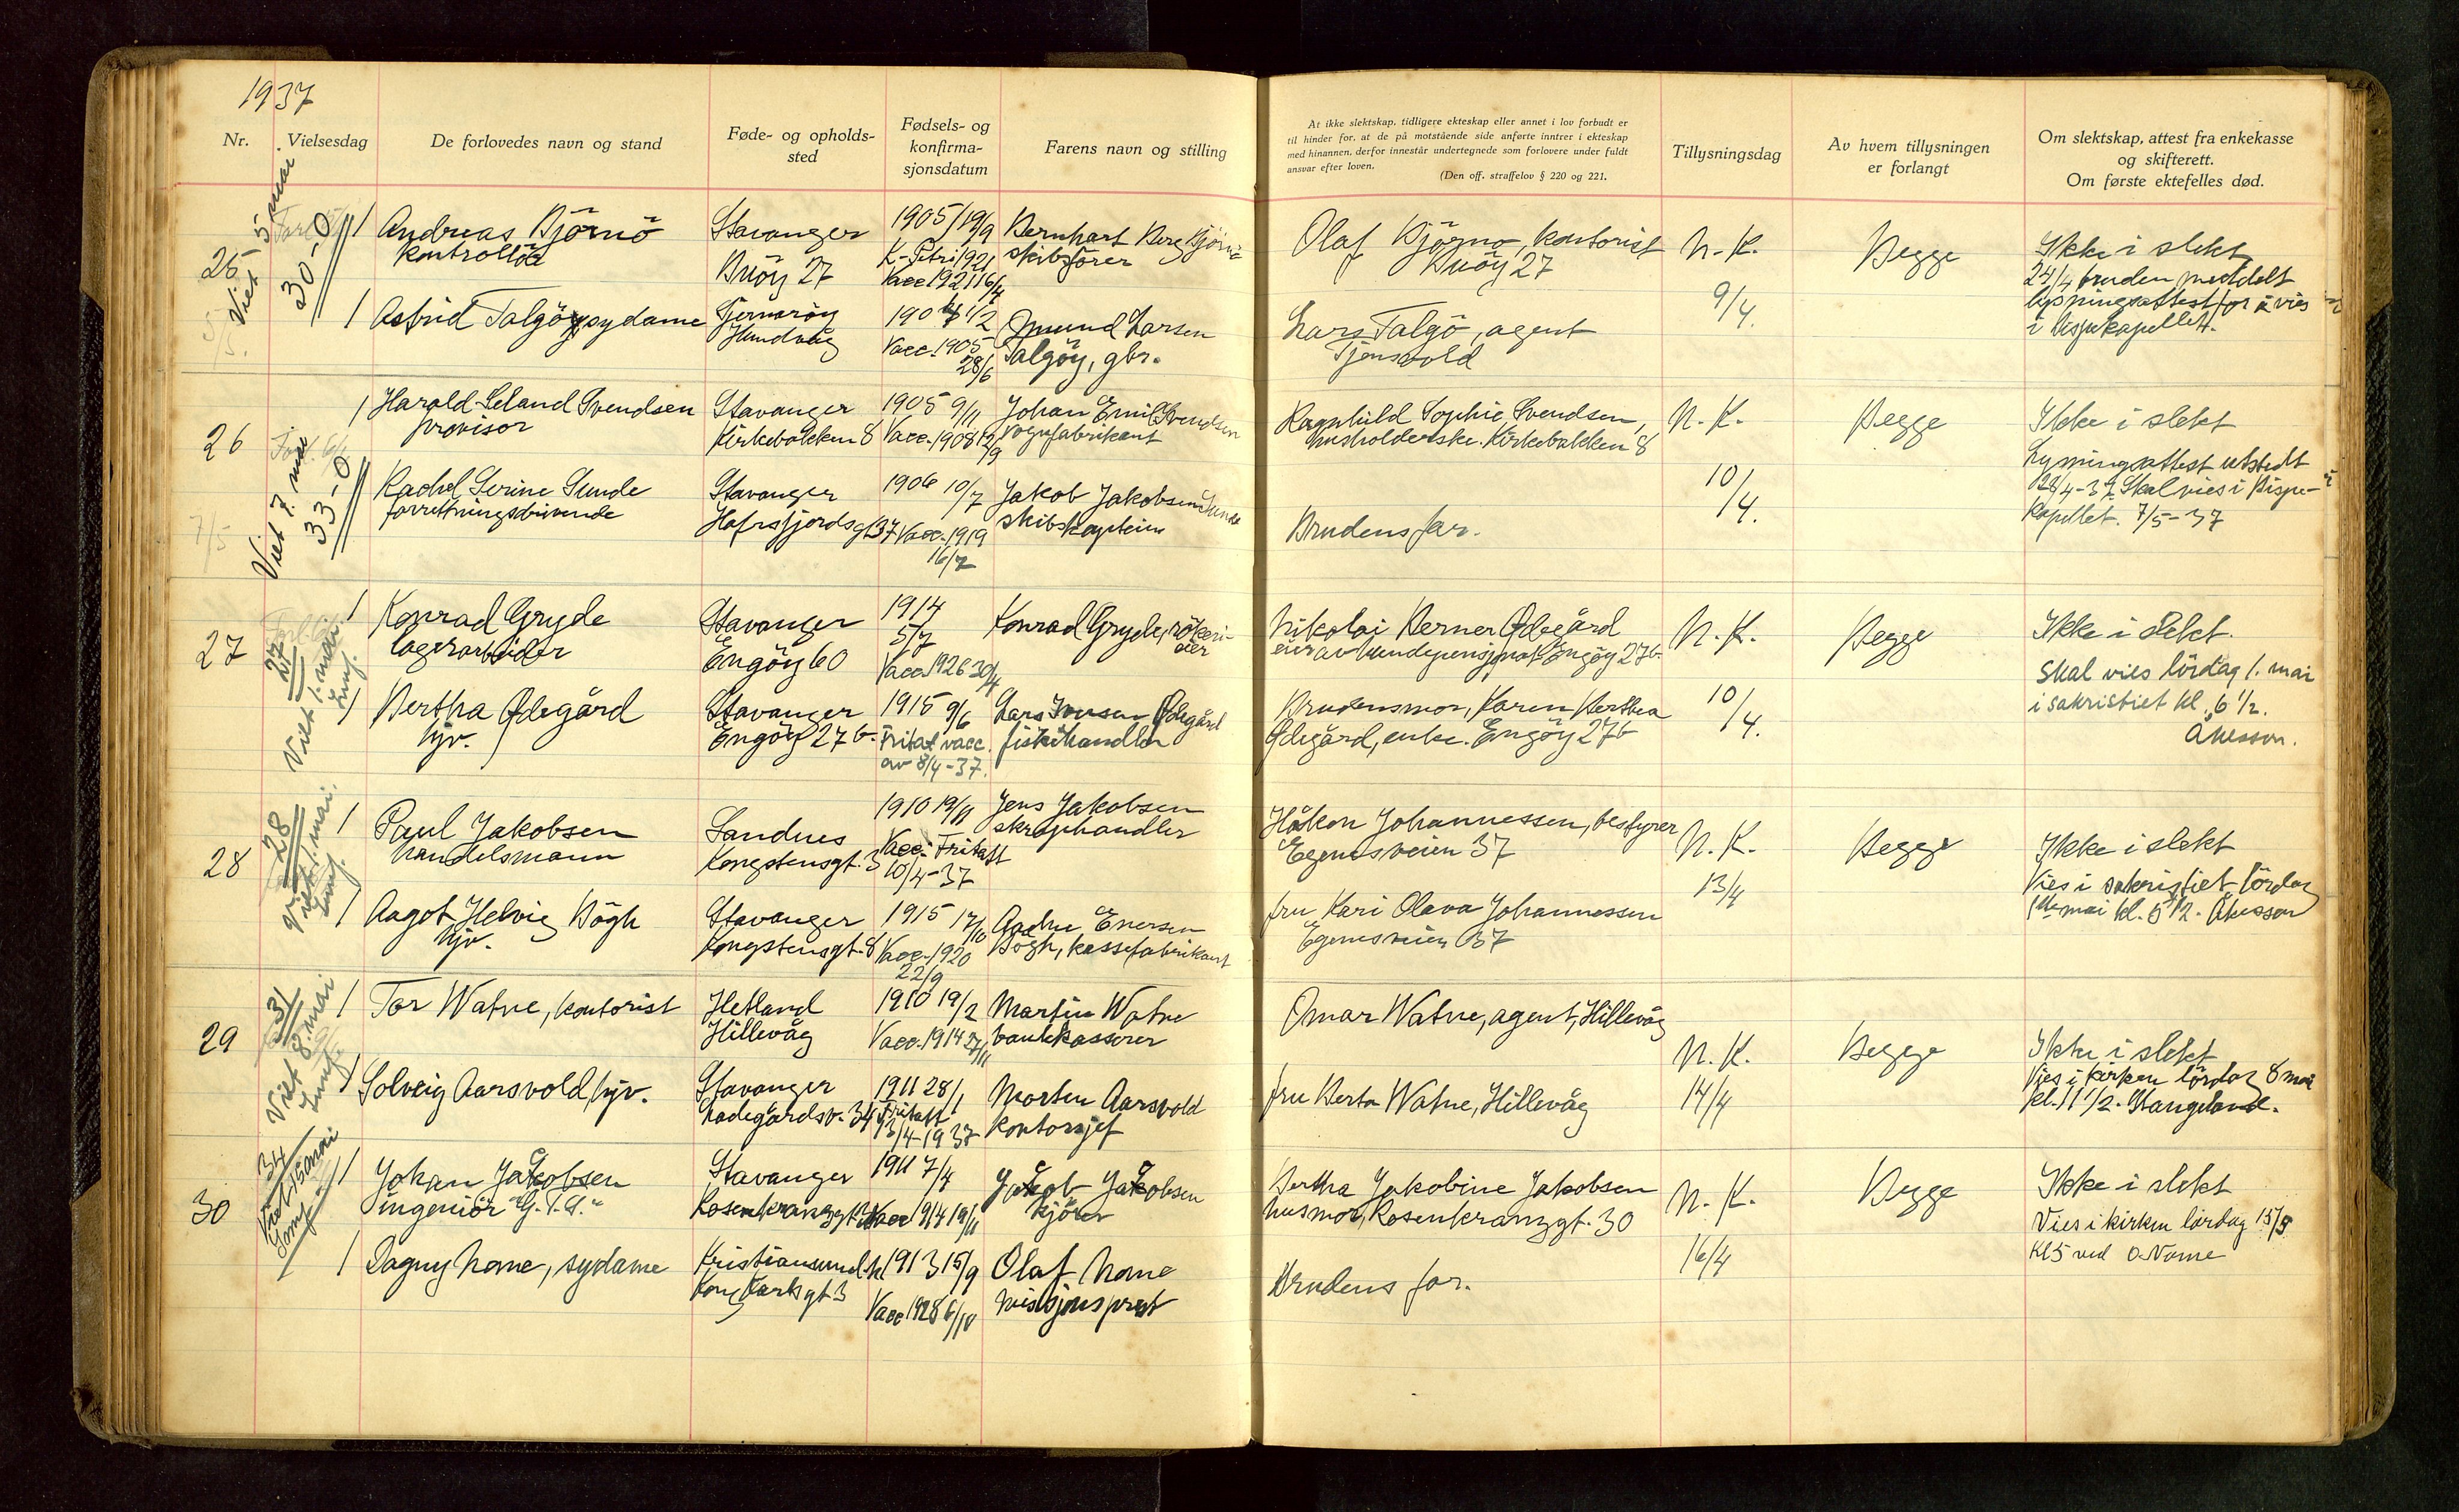 1937
Nr.
Vielsesdag
De forlovedes navn og stand
Føde- og opholds-
sted
Fødsels- og
konfirma-
sjonsdatum
Farens navn og stilling
At ikke slektskap, tidligere ekteskap eller annet i lov forbudt er
til hinder for, at de på motstående side anførte inntrer i ekteskap
med hinannen, derfor innestår undertegnede som forlovere under fuldt
ansvar efter loven.
(Den off. straffelov § 220 og 221.
Tillysningsdag
Av hvem tillysningen
er forlangt
Om slektskap, attest fra enkekasse
og skifterett.
Om første ektefelles død.
25
Viet 5 mai
30-0
Andreas Bjørnø
kontrollør
Stavanger
Buøy 27
1905 19/9
K. Petri 1921
Vacc 1921 16/4
Bernhart Berg Bjørnø
skibsfører
Olaf Bjørnø, kontorist
Buöy 27
N. K.
9/4.
Begge
Ikke i slekt
24/4 bruden meddelt
lysningsattest for å vies
i bispekapellet.
Astrid Talgöy sydame
Fjernöröy
Hundvåg
Vacc. 1905
28/6
Omund Larsen
Talgöy, gbr.
Lars Talgö, agent
Tjensvold
26
Viet 7. mai
33-0
7/5
Harald Leland Svendsen
provisor
Stavanger
Kirkebakken 8
1905 9/11
Vacc. 1908 12/9
Johan Emil Svendsen
vognfabrikant
Ragnhild Sophie Svendsen,
husholderske. Kirkebakken 8
N. K.
10/4.
Begge
Ikke i slekt
Lysningsattest utstedt
28/4-37. Skal vies i Bispe-
kapellet. 7/5-37
Rachel Serine Sunde
forretningsdrivende
Stavanger
Hafrsfjordsgt 37
1906 10/7
Vacc. 1919
16/7
Jakob Jakobsen Sunde
skibskaptein
Brudens far.
27
27
Viet 1. mai.
Konrad Gryde
lagerarbeider
Stavanger
Engöy 60
1914
5/7
Vacc. 1926 30/4
Konrad Gryde, røkeri-
eier
Nikolai Berner Ødegård
eier av hundepensjonat Engöy 27b
N. K.
10/4.
Begge
Ikke i slekt.
Skal vies lördag 1. mai
i sakristiet kl. 6 1/2.
Åkesson.
Bertha Ødegård
hjv.
Stavanger
Engöy 27b.
1915 9/6
Fritat vacc.
av 8/4-37.
Lars Iversen Ødegård
fiskehandler
Brudens mor, Karen Berthea
Ødegård, enke. Engöy 27b
28
28
Viet 1. mai.
Paul Jakobsen
handelsmann
Sandnes
Kongstensgt. 3
1910 19/11
Vacc. Fritatt
10/4-37
Jens Jakobsen
skraphandler
Håkon Johannessen, bestyrer
Egenesveien 37
N. K.
13/4
Begge
Ikke i slekt
Vies i sakristiet lördag
1ste mai kl. 5 1/2. Åkesson
Aagot Helvig Bögh
hjv.
Stavanger
Kongstensgt. 8
1915 17/10
Vacc. 1920
22/9
Aadne Enersen
Bögh, kassefabrikant
fru Kari Olava Johannessen
Egenesveien 37
29
31
Viet 8. mai
Tor Watne, kontorist
Hetland
Hillevåg
1910 19/2
Vacc. 1914 27/11
Martin Watne
bankkasserer
Omar Watne, agent, Hillevåg
N. K.
14/4
Begge
Ikke i slekt
Vies i kirken lördag 8 mai
kl. 11 1/2. Stangeland.
Solveig Aarsvold, hjv.
Stavanger
Ladegårdsv. 34
1911 28/1
Fritatt
13/4-1937
Morten Aarsvold
kontorsjef
fru Berta Watne, Hillevåg
30
34
Viet 15 mai
Johan Jakobsen
ingeniör "G.T.A."
Stavanger
Rosenkranzgt. 30
1911 7/4
Vacc 1914 19/11
Jakob Jakobsen
kjører
Bertha Jakobine Jakobsen
husmor, Rosenkranzgt. 30
N. K.
16/4
Begge
Ikke i slekt
Vies i kirken lördag 15/5
Kl 5 ved O. Nome
Dagny Nome, sydame
Kristiansund N
Kong Karls gt 3
1913 15/9
Vacc 1928 6/10
Olaf Nome
misjonsprest
Brudens far.